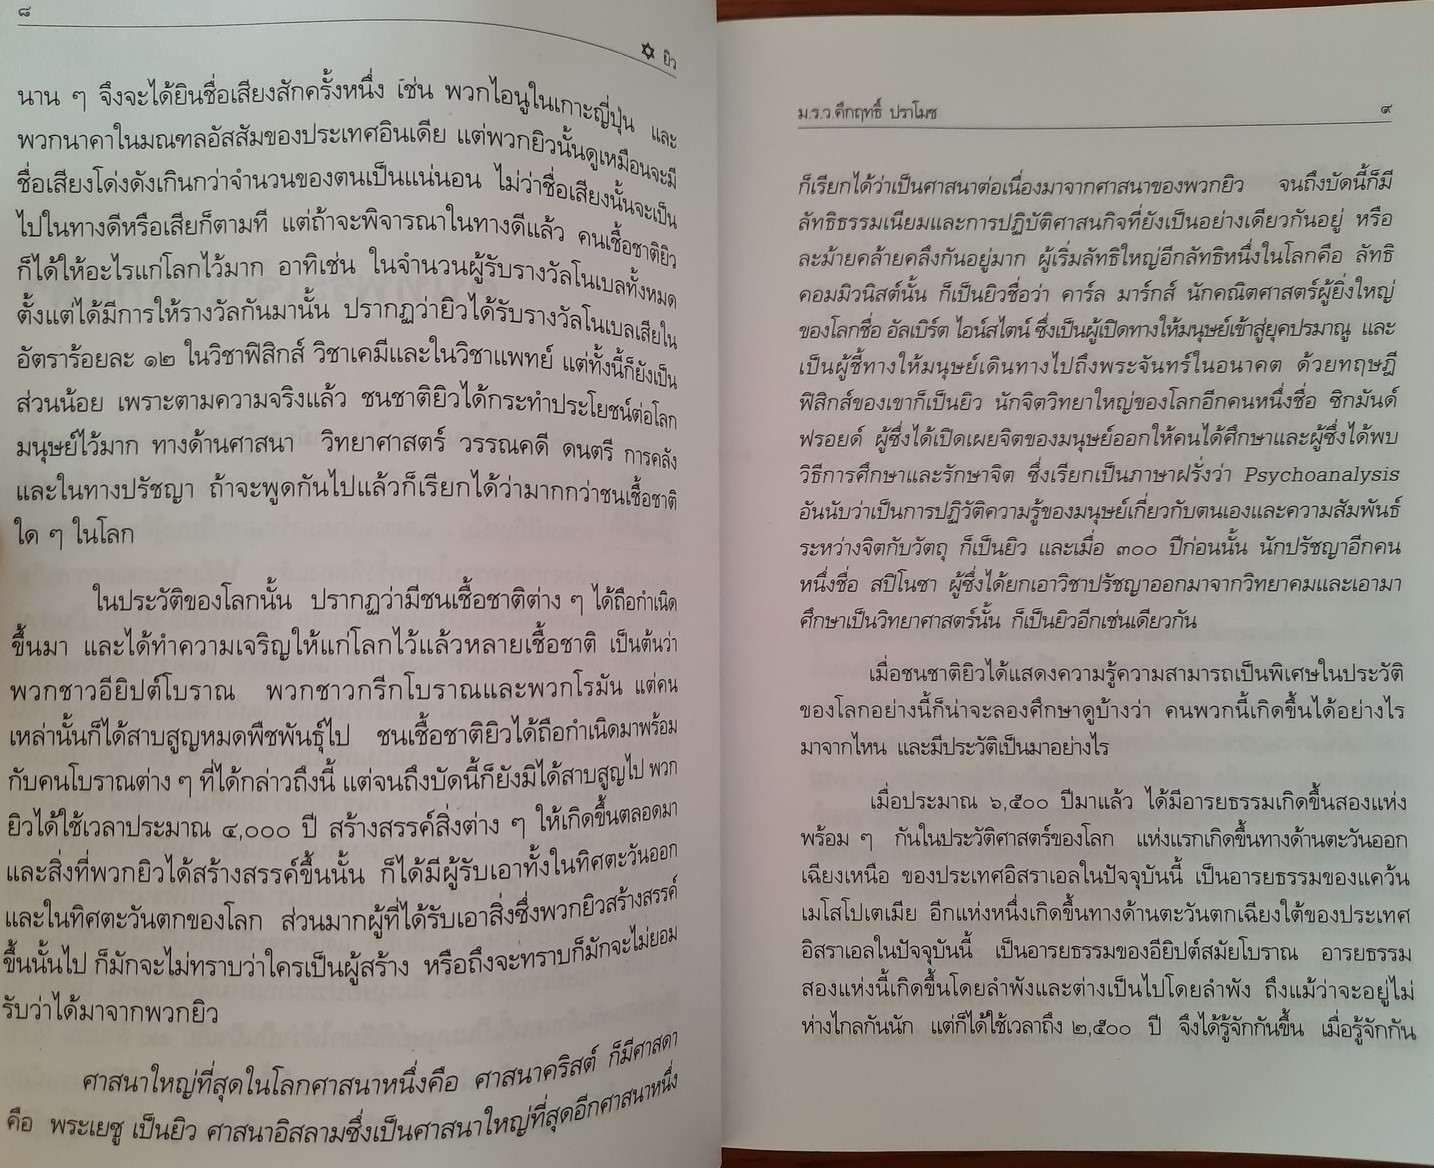 ๘
✡ ยิว
นาน ๆ จึงจะได้ยินชื่อเสียงสักครั้งหนึ่ง เช่น พวกไอนูในเกาะญี่ปุ่น และ
พวกนาคาในมณฑลอัสสัมของประเทศอินเดีย แต่พวกยิวนั้นดูเหมือนจะมี
ชื่อเสียงโด่งดังเกินกว่าจำนวนของตนเป็นแน่นอน ไม่ว่าชื่อเสียงนั้นจะเป็น
ไปในทางดีหรือเสียก็ตามที แต่ถ้าจะพิจารณาในทางดีแล้ว คนเชื้อชาติยิว
ก็ได้ให้อะไรแก่โลกไว้มาก อาทิเช่น ในจำนวนผู้รับรางวัลโนเบลทั้งหมด
ตั้งแต่ได้มีการให้รางวัลกันมานั้น ปรากฏว่ายิวได้รับรางวัลโนเบลเสียใน
อัตราร้อยละ ๑๒ ในวิชาฟิสิกส์ วิชาเคมีและในวิชาแพทย์ แต่ทั้งนี้ก็ยังเป็น
ส่วนน้อย เพราะตามความจริงแล้ว ชนชาติยิวได้กระทำประโยชน์ต่อโลก
มนุษย์ไว้มาก ทางด้านศาสนา วิทยาศาสตร์ วรรณคดี ดนตรี การคลัง
และในทางปรัชญา ถ้าจะพูดกันไปแล้วก็เรียกได้ว่ามากกว่าชนเชื้อชาติ
ใด ๆ ในโลก
ในประวัติของโลกนั้น ปรากฏว่ามีชนเชื้อชาติต่าง ๆ ได้ถือกำเนิด
ขึ้นมา และได้ทำความเจริญให้แก่โลกไว้แล้วหลายเชื้อชาติ เป็นต้นว่า
พวกชาวอียิปต์โบราณ พวกชาวกรีกโบราณและพวกโรมัน แต่คน
เหล่านั้นก็ได้สาบสูญหมดพืชพันธุ์ไป ชนเชื้อชาติยิวได้ถือกำเนิดมาพร้อม
กับคนโบราณต่าง ๆ ที่ได้กล่าวถึงนี้ แต่จนถึงบัดนี้ก็ยังมิได้สาบสูญไป พวก
ยิวได้ใช้เวลาประมาณ ๔,๐๐๐ ปี สร้างสรรค์สิ่งต่าง ๆ ให้เกิดขึ้นตลอดมา
และสิ่งที่พวกยิวได้สร้างสรรค์ขึ้นนั้น ก็ได้มีผู้รับเอาทั้งในทิศตะวันออก
และในทิศตะวันตกของโลก ส่วนมากผู้ที่ได้รับเอาสิ่งซึ่งพวกยิวสร้างสรรค์
ขึ้นนั้นไป ก็มักจะไม่ทราบว่าใครเป็นผู้สร้าง หรือถึงจะทราบก็มักจะไม่ยอม
รับว่าได้มาจากพวกยิว
ศาสนาใหญ่ที่สุดในโลกศาสนาหนึ่งคือ ศาสนาคริสต์ ก็มีศาสดา
คือ พระเยซู เป็นยิว ศาสนาอิสลามซึ่งเป็นศาสนาใหญ่ที่สุดอีกศาสนาหนึ่ง
ม.ร.ว.คึกฤทธิ์ ปราโมช ๙
ก็เรียกได้ว่าเป็นศาสนาต่อเนื่องมาจากศาสนาของพวกยิว จนถึงบัดนี้ก็มี
ลัทธิธรรมเนียมและการปฏิบัติศาสนกิจที่ยังเป็นอย่างเดียวกันอยู่ หรือ
ละม้ายคล้ายคลึงกันอยู่มาก ผู้เริ่มลัทธิใหญ่อีกลัทธิหนึ่งในโลกคือ ลัทธิ
คอมมิวนิสต์นั้น ก็เป็นยิวชื่อว่า คาร์ล มาร์กส์ นักคณิตศาสตร์ผู้ยิ่งใหญ่
ของโลกชื่อ อัลเบิร์ต ไอน์สไตน์ ซึ่งเป็นผู้เปิดทางให้มนุษย์เข้าสู่ยุคปรมาณู และ
เป็นผู้ชี้ทางให้มนุษย์เดินทางไปถึงพระจันทร์ในอนาคต ด้วยทฤษฎี
ฟิสิกส์ของเขาก็เป็นยิว นักจิตวิทยาใหญ่ของโลกอีกคนหนึ่งชื่อ ซิกมันด์
ฟรอยด์ ผู้ซึ่งได้เปิดเผยจิตของมนุษย์ออกให้คนได้ศึกษาและผู้ซึ่งได้พบ
วิธีการศึกษาและรักษาจิต ซึ่งเรียกเป็นภาษาฝรั่งว่า Psychoanalysis
อันนับว่าเป็นการปฏิวัติความรู้ของมนุษย์เกี่ยวกับตนเองและความสัมพันธ์
ระหว่างจิตกับวัตถุ ก็เป็นยิว และเมื่อ ๓๐๐ ปีก่อนนั้น นักปรัชญาอีกคน
หนึ่งชื่อ สปิโนซา ผู้ซึ่งได้ยกเอาวิชาปรัชญาออกมาจากวิทยาคมและเอามา
ศึกษาเป็นวิทยาศาสตร์นั้น ก็เป็นยิวอีกเช่นเดียวกัน
เมื่อชนชาติยิวได้แสดงความรู้ความสามารถเป็นพิเศษในประวัติ
ของโลกอย่างนี้ก็น่าจะลองศึกษาดูบ้างว่า คนพวกนี้เกิดขึ้นได้อย่างไร
มาจากไหน และมีประวัติเป็นมาอย่างไร
เมื่อประมาณ ๖,๕๐๐ ปีมาแล้ว ได้มีอารยธรรมเกิดขึ้นสองแห่ง
พร้อม ๆ กันในประวัติศาสตร์ของโลก แห่งแรกเกิดขึ้นทางด้านตะวันออก
เฉียงเหนือ ของประเทศอิสราเอลในปัจจุบันนี้ เป็นอารยธรรมของแคว้น
เมโสโปเตเมีย อีกแห่งหนึ่งเกิดขึ้นทางด้านตะวันตกเฉียงใต้ของประเทศ
อิสราเอลในปัจจุบันนี้ เป็นอารยธรรมของอียิปต์สมัยโบราณ อารยธรรม
สองแห่งนี้เกิดขึ้นโดยลำพังและต่างเป็นไปโดยลำพัง ถึงแม้ว่าจะอยู่ไม่
ห่างไกลกันนัก แต่ก็ได้ใช้เวลาถึง ๒,๕๐๐ ปี จึงได้รู้จักกันขึ้น เมื่อรู้จักกัน